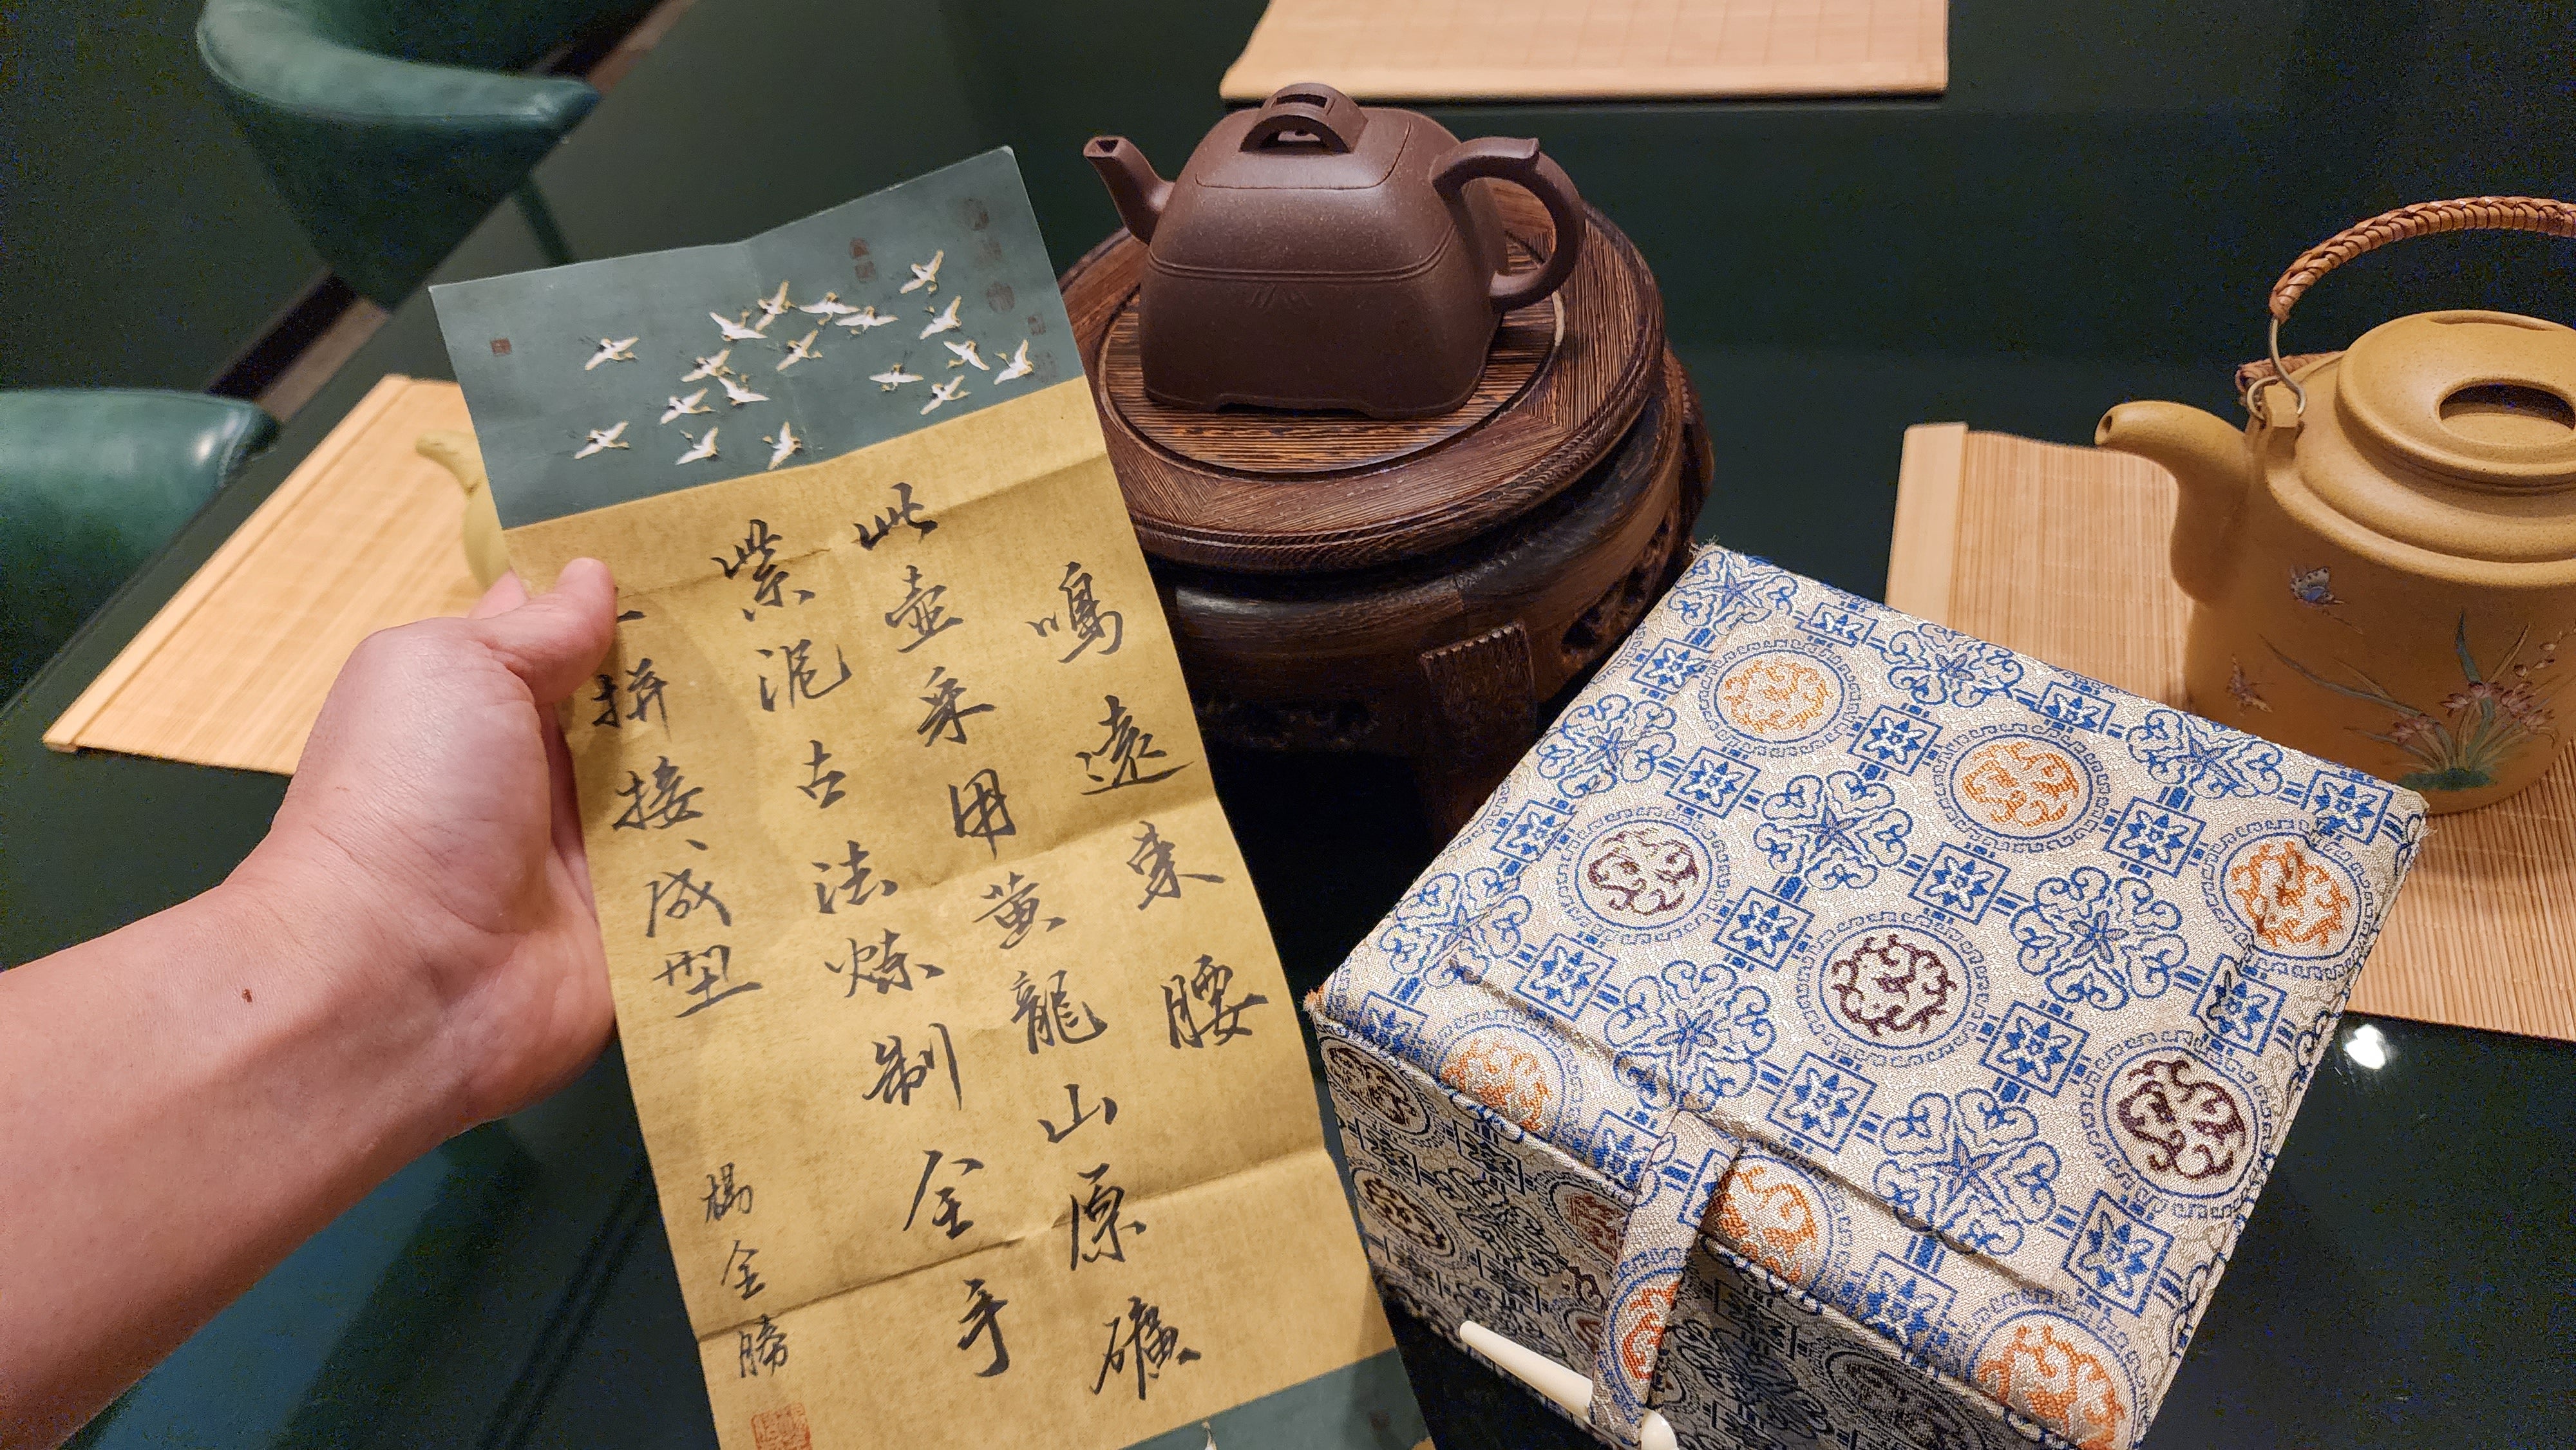 鳴遠束腰
此壺采用黄龍山原礦
紫泥古法煉制全手
工拼接、成型
楊全勝